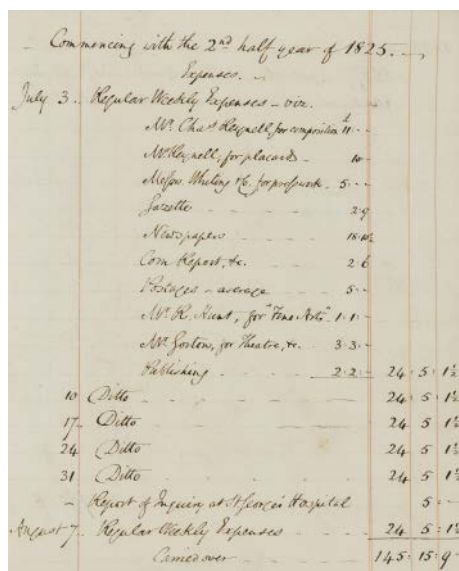 Commencing with the 2nd half year of 1825.
Expenses.
July 3. Regular Weekly Expenses - viz.
Mr. Chas. Reynell, for composition £11 . - . -
Mr. Reynell, for placards - 10 -
Messrs. Whiting & Co. for presswork . 5 . - . -
Gazette 2 . 9
Newspapers 18 . 10½
Corn Report, &c. 2 . 6
Postages - average 5 . -
Mr. R. Hunt, for "Fine Arts" . 1 . 1 . -
Mr. Gorton, for Theatre, &c. 3 . 3 . -
Publishing 2 . 2 . - 24 . 5 . 1½
10 Ditto 24 . 5 . 1½
17 Ditto 24 5 1½
24 Ditto 24 5 1½
31 Ditto 24 5 1½
- Report of Inquiry at St George's Hospital 5 . -
August 7. Regular Weekly Expenses 24 . 5 . 1½
Carried over 145 . 15 . 9